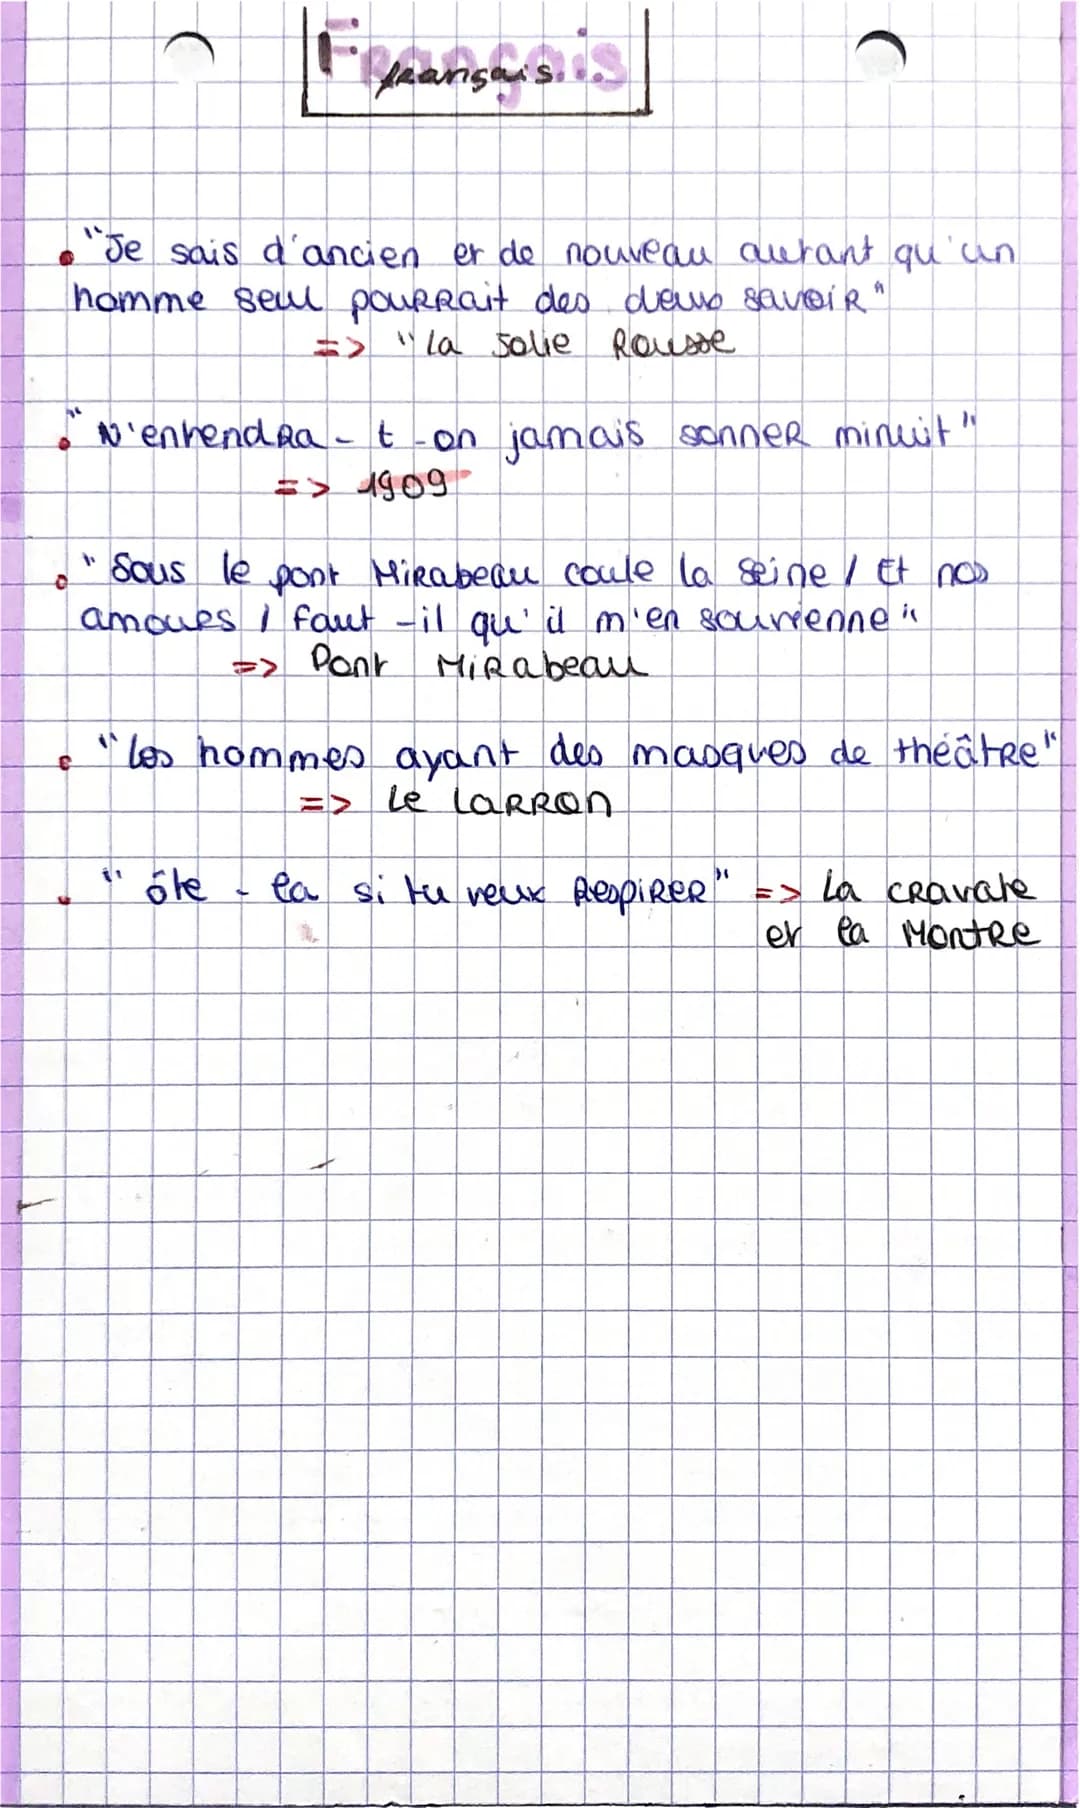 Français
français
"Je sais d'ancien et de nouveau autant qu'un
homme seul pourrait des deux savoir"
=> "La Jolie Rousse
"N'entendra-t-on jamais sonner minuit"
=> 1909
"Sous le pont Mirabeau coule la Seine / Et nos
amours / faut-il qu'il m'en souvienne"
=> Pont Mirabeau
"Les hommes ayant des masques de théâtre"
=> Le Larron
"ôte-la si tu veux Respirer" => La cravate
et la Montre